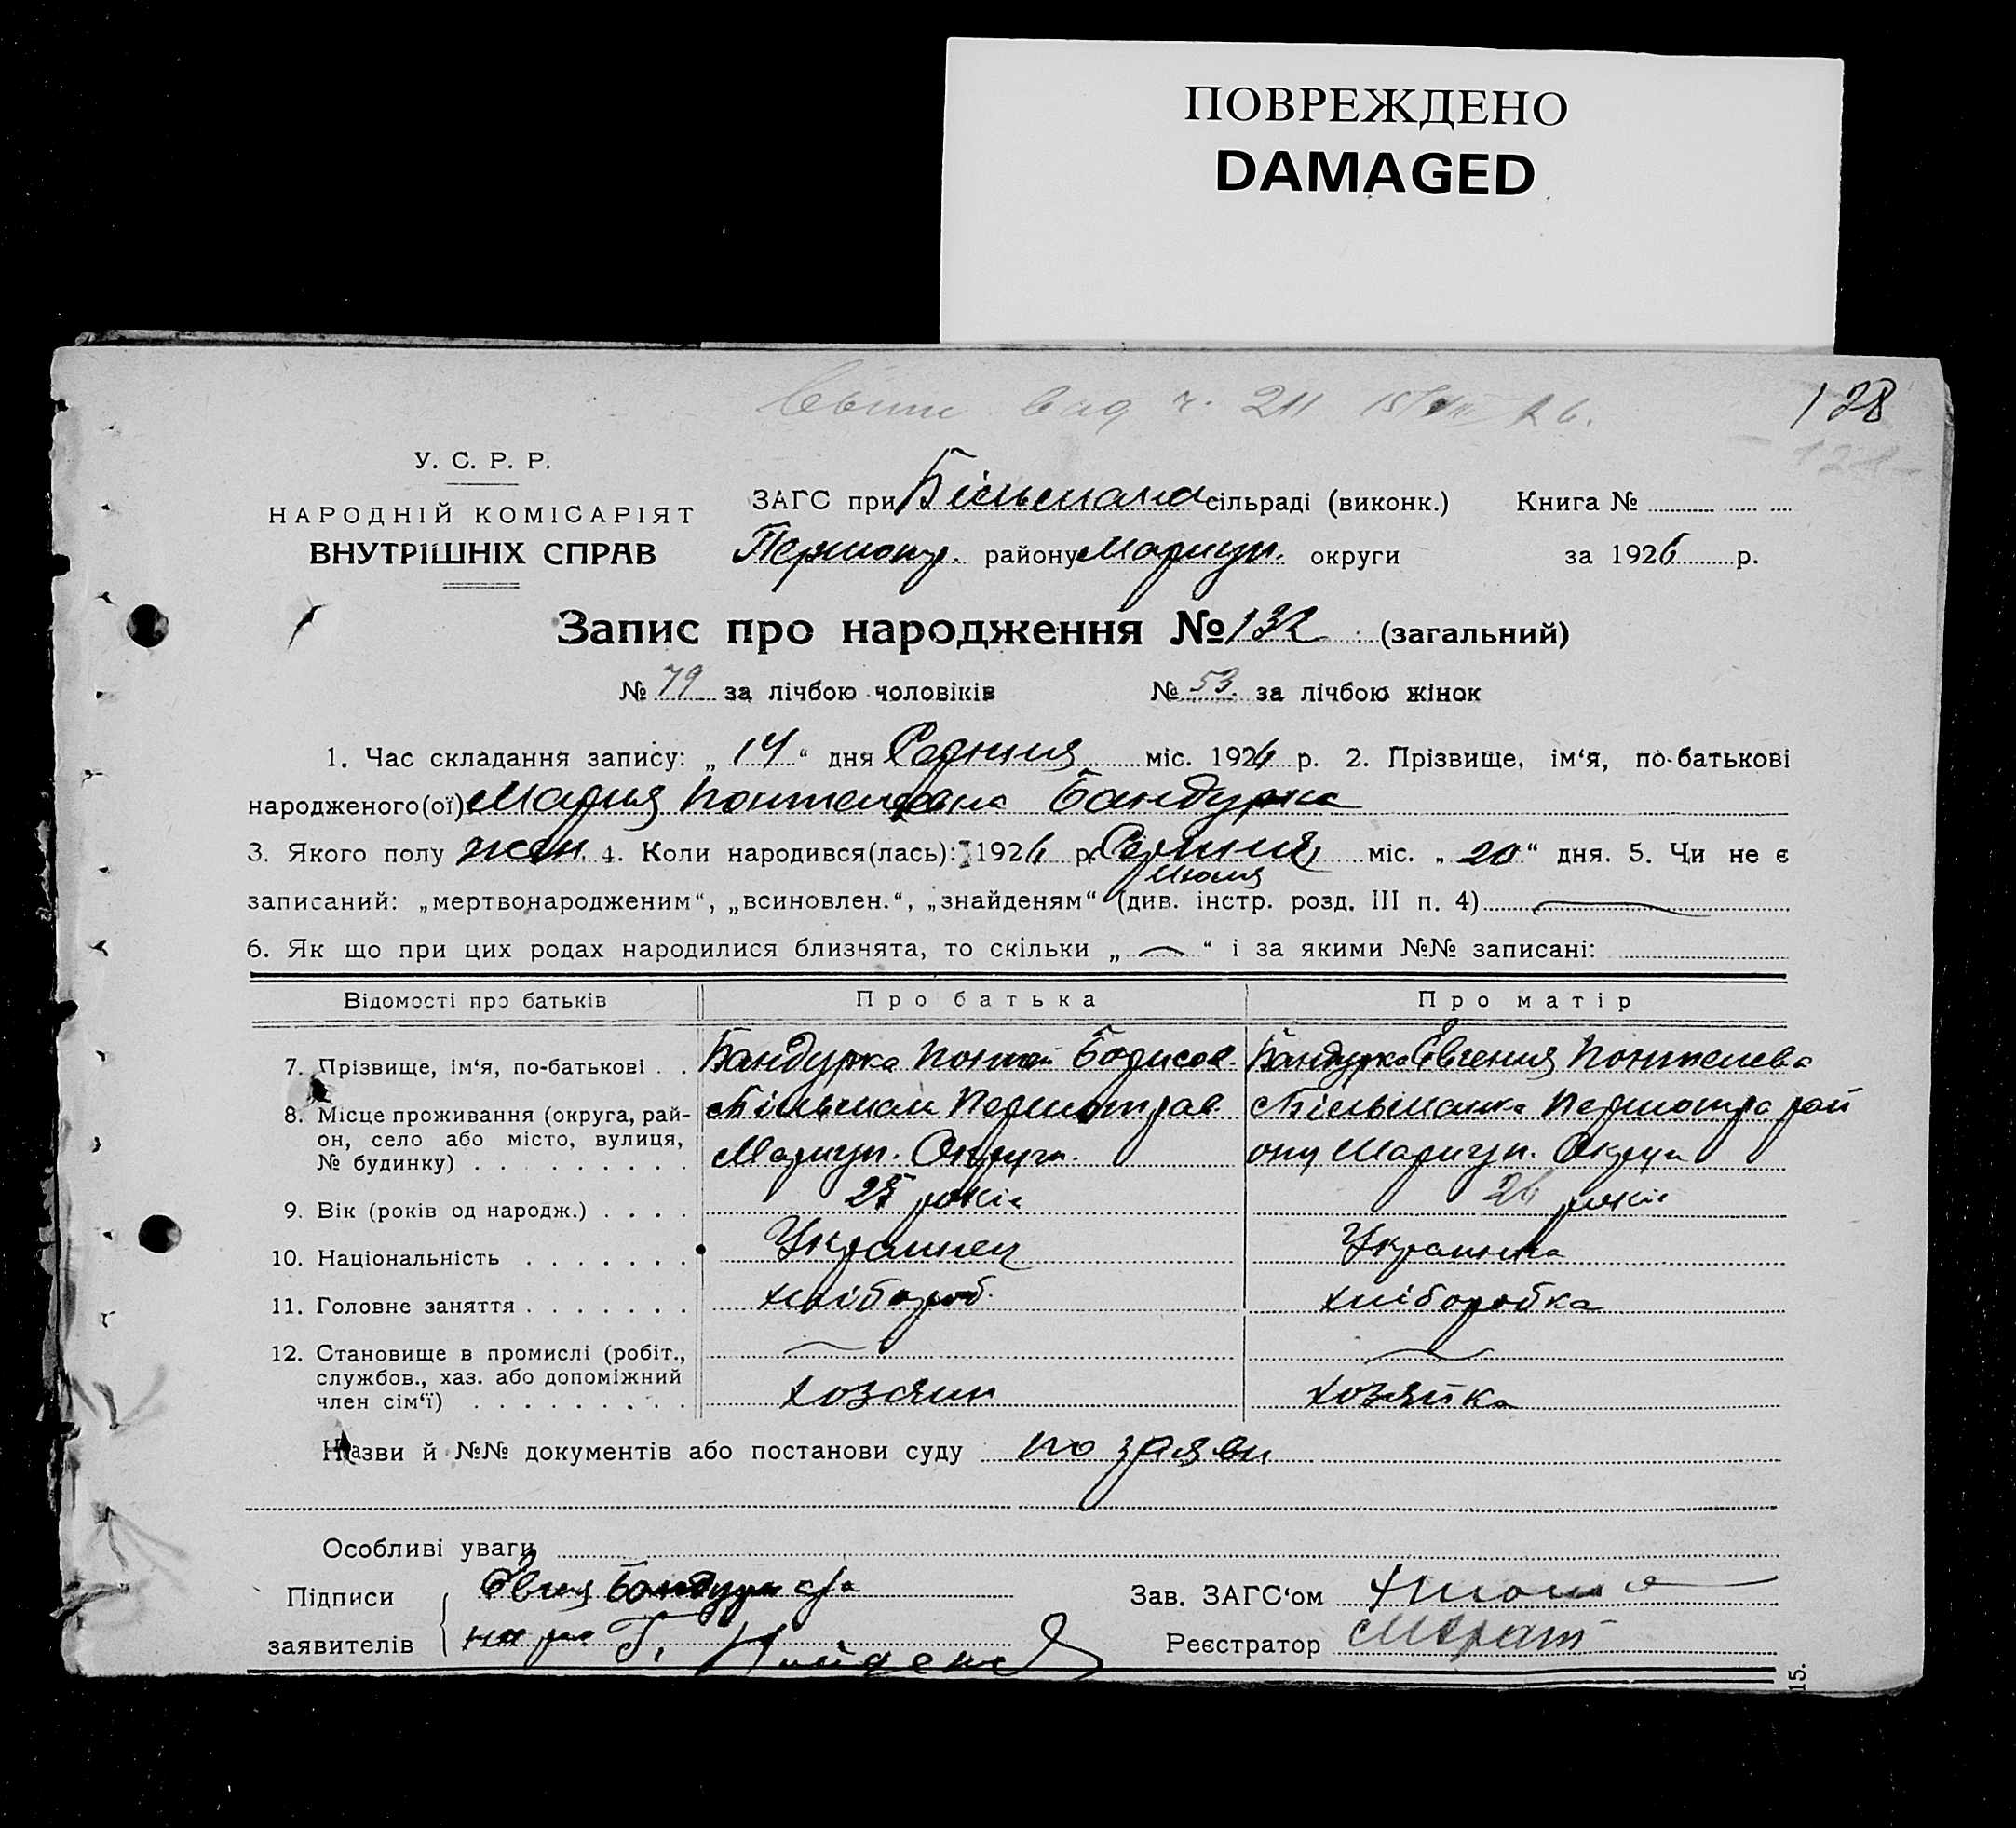 ПОВРЕЖДЕНО
DAMAGED
вид ч. 211 26.
128
У. С. Р. Р.
НАРОДНІЙ КОМІСАРІЯТ
ВНУТРІШНІХ СПРАВ
ЗАГС при Більмана сільраді (виконк.) Книга №
району Мариуп. округи за 1926 р.
Запис про народження № 132 (загальний)
№ 79 за лічбою чоловіків № 53 за лічбою жінок
1. Час складання запису: „ 14 “ дня Серпня міс. 1926 р. 2. Прізвище, ім‘я, по-батькові
народженого(ої) Мария Пантелеевна Бандурка
3. Якого полу жен. 4. Коли народився(лась): 1926 р. Серпня міс. „ 20 “ дня. 5. Чи не є
Июля
записаний: „мертвонародженим“, „всиновлен.“, „знайденям“ (див. інстр. розд. III п. 4)
6. Як що при цих родах народилися близнята, то скільки „ “ і за якими №№ записані:
Відомості про батьків Про батька Про матір
7. Прізвище, ім‘я, по-батькові . . Бандурка Борисов. Бандурка Евгения
8. Місце проживання (округа, рай-
он, село або місто, вулиця,
№ будинку) . . . . . . . . . Мариуп. Округи. Мариуп. Округи
9. Вік (років од народж.) . . . . років 26 років
10. Національність . . . . . . . Украинец Украинка
11. Головне заняття . . . . . . . хлібороб. хліборобка
12. Становище в промислі (робіт.,
службов., хаз. або допоміжний
член сім‘ї) . . . . . . . . . хозяин хозяйка
Назви й №№ документів або постанови суду по заяви
Особливі уваги
Підписи Бандурка
заявителів
Зав. ЗАГС‘ом
Реєстратор
15.